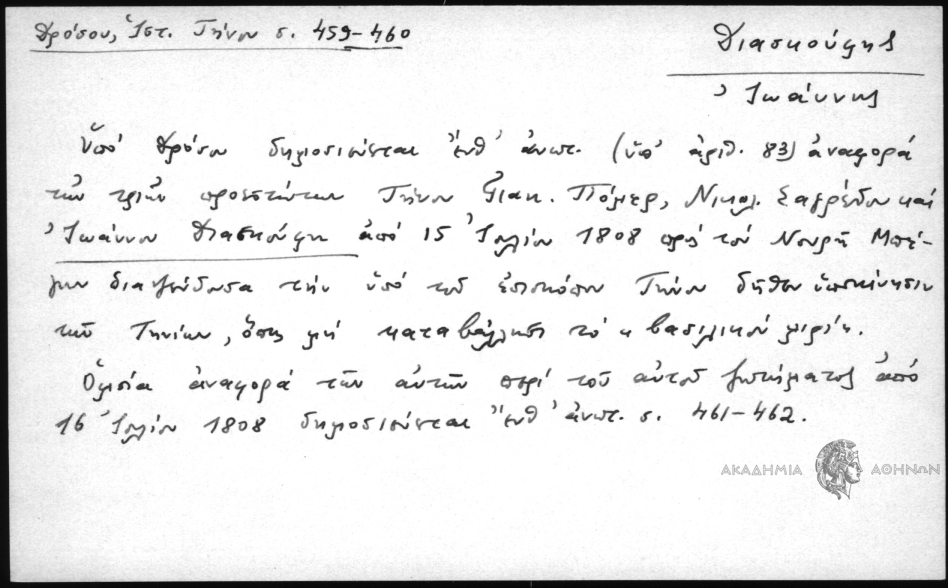 Δρόσου, Ἱστ. Τήνου σ. 459-460
Διασκούφης
Ἰωάννης
Ὑπό Δρόσου δημοσιεύεται ἔνθ' ἀνωτ. (ὑπ' ἀριθ. 83) ἀναφορά
τῶν τριῶν προεστώτων Τήνου Γιακ. Πώμερ, Νικολ. Σαγρέδου καί
Ἰωάννου Διασκούφη ἀπό 15 Ἰουλίου 1808 πρός τόν Νουρῆ Μπέ-
ην διαψεύδουσα τήν ὑπό τοῦ ἐπισκόπου Τήνου δῆθεν ὑποκίνησιν
τῶν Τηνίων, ὅπως μή καταβάλλωσι τό «βασιλικόν μιρί».
Ὁμοία ἀναφορά τῶν αὐτῶν περί τοῦ αὐτοῦ ζητήματος ἀπό
16 Ἰουλίου 1808 δημοσιεύεται ἔνθ' ἀνωτ. σ. 461-462.
ΑΚΑΔΗΜΙΑ ΑΘΗΝΩΝ